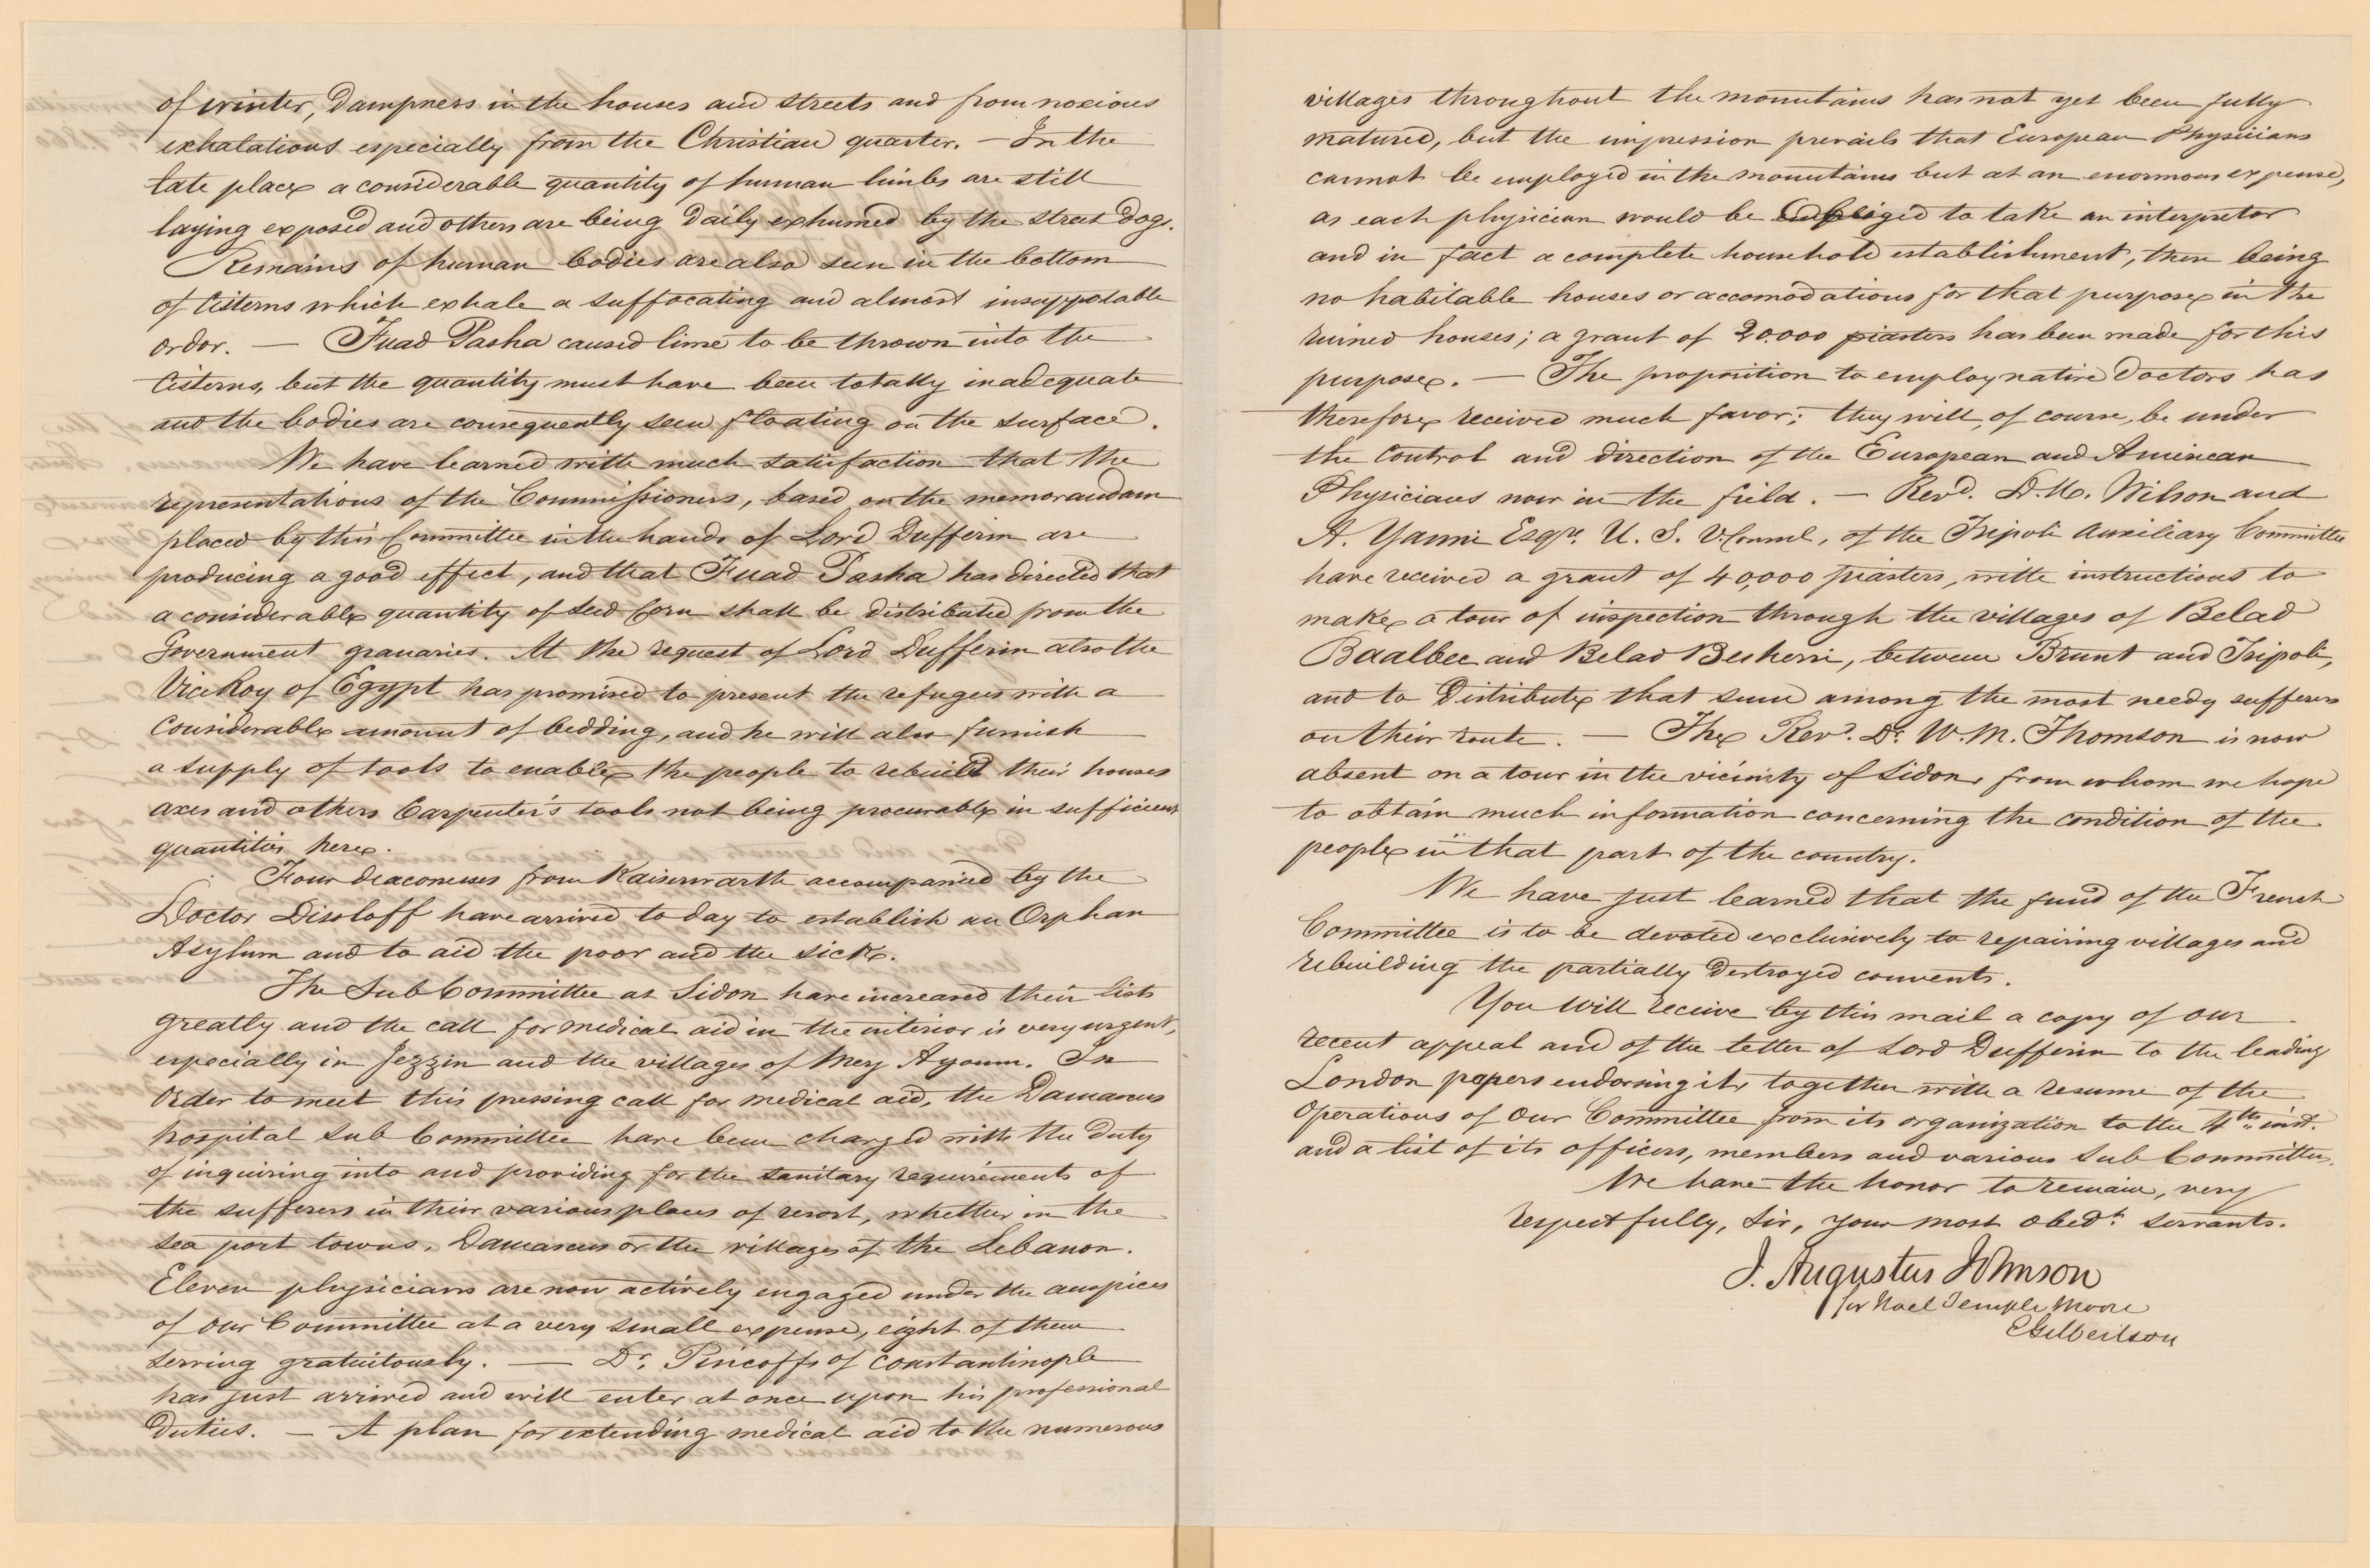 of winter, dampness in the houses and streets and from noxious
exhalations especially from the Christian quarter. — In the
late place a considerable quantity of human limbs are still
laying exposed and others are being daily exhumed by the street dogs.
Remains of human bodies are also seen in the bottom
of Cisterns which exhale a suffocating and almost insupportable
ordor. — Fuad Pasha caused lime to be thrown into the
Cisterns, but the quantity must have been totally inadequate
and the bodies are consequently seen floating on the surface.
We have learned with much satisfaction that the
representations of the Commissioners, based on the memorandum
placed by this Committee in the hands of Lord Dufferin are
producing a good effect, and that Fuad Pasha has directed that
a considerable quantity of seed Corn shall be distributed from the
Government granaries. At the request of Lord Dufferin also the
ViceRoy of Egypt has promised to present the refugees with a
Considerable amount of bedding, and he will also furnish
a supply of tools to enable the people to rebuild their houses
axes and others Carpenter's tools not being procurable in sufficient
quantities here.
Four deaconesses from Kaiserwarth accompanied by the
Doctor Dissloff have arrived to day to establish an Orphan
Asylum and to aid the poor and the sick.
The Sub Committee at Sidon have increased their lists
greatly and the call for medical aid in the interior is very urgent,
especially in Jezzin and the villages of Merj Ayoum. In
Order to meet this pressing call for medical aid, the Damascus
hospital Sub Committee have been charged with the duty
of inquiring into and providing for the sanitary requirements of
the sufferers in their various places of resort, whether in the
sea port towns, Damascus or the villages of the Lebanon.
Eleven physicians are now actively engaged under the auspices
of our Committee at a very small expense, eight of them
serving gratuitously. — Dr. Pincoffs of Constantinople
has just arrived and will enter at once upon his professional
Duties. — A plan for extending medical aid to the numerous
villages throughout the mountains has not yet been fully
matured, but the impression prevails that European Physicians
cannot be employed in the mountains but at an enormous expense,
as each physician would be obliged to take an interpretor
and in fact a complete household establishment, there being
no habitable houses or accomodations for that purpose in the
ruined houses; a grant of 20.000 piasters has been made for this
purpose. — The proposition to employ native Doctors has
therefore received much favor; they will, of course, be under
the Control and direction of the European and American
Physicians now in the field. — Revd. D. M. Wilson and
A. Yanni Esqr. U. S. V. Consul, of the Tripoli Auxiliary Committee
have received a grant of 40,000 piasters, with instructions to
make a tour of inspection through the villages of Belad
Baalbec and Belad Besherri, between Brunt and Tripoli,
and to Distribute that sum among the most needy sufferers
on their route. — The Revd. Dr. W. M. Thomson is now
absent on a tour in the vicinity of Sidon, from whom we hope
to obtain much information concerning the condition of the
people in that part of the country.
We have just learned that the fund of the French
Committee is to be devoted exclusively to repairing villages and
rebuilding the partially destroyed convents.
You will receive by this mail a copy of our
recent appeal and of the letter of Lord Dufferin to the leading
London papers endorsing it, together with a resume of the
Operations of our Committee from its organization to the 4th. inst.
and a list of its officers, members and various Sub Committees.
We have the honor to remain, very
respectfully, Sir, your most obedt. servants.
J. Augustus Johnson
for Noel Temple Moore